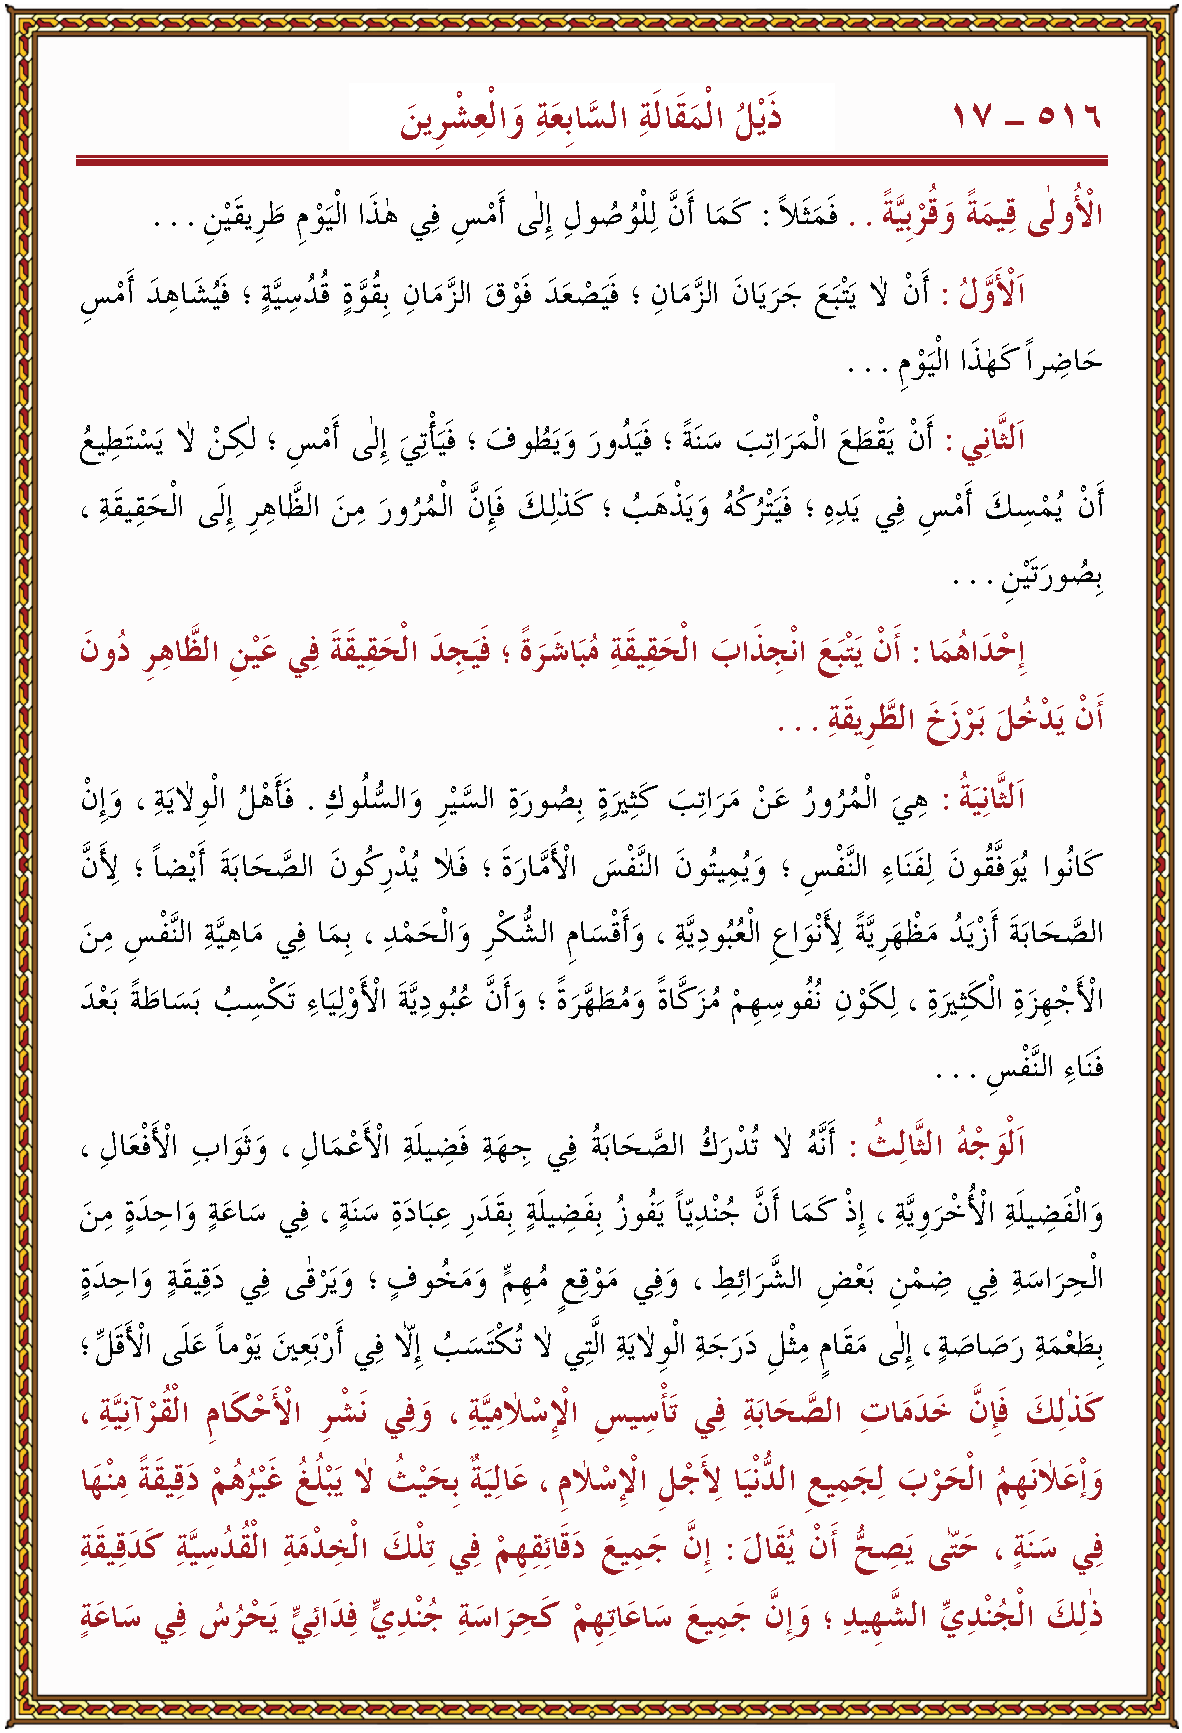 ٥١٦ – ١٧ ذَيْلُ الْمَقَالَةِ السَّابِعَةِ وَالْعِشْرِينَ
الْأُولٰى قِيمَةً وَقُرْبِيَّةً . . فَمَثَلاً : كَمَا أَنَّ لِلْوُصُولِ إِلٰى أَمْسِ فِي هٰذَا الْيَوْمِ طَرِيقَيْنِ . . .
اَلْأَوَّلُ : أَنْ لاٰ يَتْبَعَ جَرَيَانَ الزَّمَانِ ؛ فَيَصْعَدَ فَوْقَ الزَّمَانِ بِقُوَّةٍ قُدُسِيَّةٍ ؛ فَيُشَاهِدَ أَمْسِ
حَاضِراً كَهٰذَا الْيَوْمِ . . .
اَلثَّانِي : أَنْ يَقْطَعَ الْمَرَاتِبَ سَنَةً ؛ فَيَدُورَ وَيَطُوفَ ؛ فَيَأْتِيَ إِلٰى أَمْسِ ؛ لٰكِنْ لاٰ يَسْتَطِيعُ
أَنْ يُمْسِكَ أَمْسِ فِي يَدِهِ ؛ فَيَتْرُكُهُ وَيَذْهَبُ ؛ كَذٰلِكَ فَإِنَّ الْمُرُورَ مِنَ الظَّاهِرِ إِلَى الْحَقِيقَةِ ،
بِصُورَتَيْنِ . . .
إِحْدَاهُمَا : أَنْ يَتْبَعَ انْجِذَابَ الْحَقِيقَةِ مُبَاشَرَةً ؛ فَيَجِدَ الْحَقِيقَةَ فِي عَيْنِ الظَّاهِرِ دُونَ
أَنْ يَدْخُلَ بَرْزَخَ الطَّرِيقَةِ . . .
اَلثَّانِيَةُ : هِيَ الْمُرُورُ عَنْ مَرَاتِبَ كَثِيرَةٍ بِصُورَةِ السَّيْرِ وَالسُّلُوكِ . فَأَهْلُ الْوِلاٰيَةِ ، وَإِنْ
كَانُوا يُوَفَّقُونَ لِفَنَاءِ النَّفْسِ ؛ وَيُمِيتُونَ النَّفْسَ الْأَمَّارَةَ ؛ فَلاٰ يُدْرِكُونَ الصَّحَابَةَ أَيْضاً ؛ لِأَنَّ
الصَّحَابَةَ أَزْيَدُ مَظْهَرِيَّةً لِأَنْوَاعِ الْعُبُودِيَّةِ ، وَأَقْسَامِ الشُّكْرِ وَالْحَمْدِ ، بِمَا فِي مَاهِيَّةِ النَّفْسِ مِنَ
الْأَجْهِزَةِ الْكَثِيرَةِ ، لِكَوْنِ نُفُوسِهِمْ مُزَكَّاةً وَمُطَهَّرَةً ؛ وَأَنَّ عُبُودِيَّةَ الْأَوْلِيَاءِ تَكْسِبُ بَسَاطَةً بَعْدَ
فَنَاءِ النَّفْسِ . . .
اَلْوَجْهُ الثَّالِثُ : أَنَّهُ لاٰ تُدْرَكُ الصَّحَابَةُ فِي جِهَةِ فَضِيلَةِ الْأَعْمَالِ ، وَثَوَابِ الْأَفْعَالِ ،
وَالْفَضِيلَةِ الْأُخْرَوِيَّةِ ، إِذْ كَمَا أَنَّ جُنْدِيّاً يَفُوزُ بِفَضِيلَةٍ بِقَدَرِ عِبَادَةِ سَنَةٍ ، فِي سَاعَةٍ وَاحِدَةٍ مِنَ
الْحِرَاسَةِ فِي ضِمْنِ بَعْضِ الشَّرَائِطِ ، وَفِي مَوْقِعٍ مُهِمٍّ وَمَخُوفٍ ؛ وَيَرْقٰى فِي دَقِيقَةٍ وَاحِدَةٍ
بِطَعْمَةِ رَصَاصَةٍ ، إِلٰى مَقَامٍ مِثْلِ دَرَجَةِ الْوِلاٰيَةِ الَّتِي لاٰ تُكْتَسَبُ إِلاّٰ فِي أَرْبَعِينَ يَوْماً عَلَى الْأَقَلِّ ؛
كَذٰلِكَ فَإِنَّ خَدَمَاتِ الصَّحَابَةِ فِي تَأْسِيسِ الْإِسْلاٰمِيَّةِ ، وَفِي نَشْرِ الْأَحْكَامِ الْقُرْآنِيَّةِ ،
وَإِعْلاٰنَهُمُ الْحَرْبَ لِجَمِيعِ الدُّنْيَا لِأَجْلِ الْإِسْلاٰمِ ، عَالِيَةٌ بِحَيْثُ لاٰ يَبْلُغُ غَيْرُهُمْ دَقِيقَةً مِنْهَا
فِي سَنَةٍ ، حَتّٰى يَصِحُّ أَنْ يُقَالَ : إِنَّ جَمِيعَ دَقَائِقِهِمْ فِي تِلْكَ الْخِدْمَةِ الْقُدُسِيَّةِ كَدَقِيقَةِ
ذٰلِكَ الْجُنْدِيِّ الشَّهِيدِ ؛ وَإِنَّ جَمِيعَ سَاعَاتِهِمْ كَحِرَاسَةِ جُنْدِيٍّ فِدَائِيٍّ يَحْرُسُ فِي سَاعَةٍ